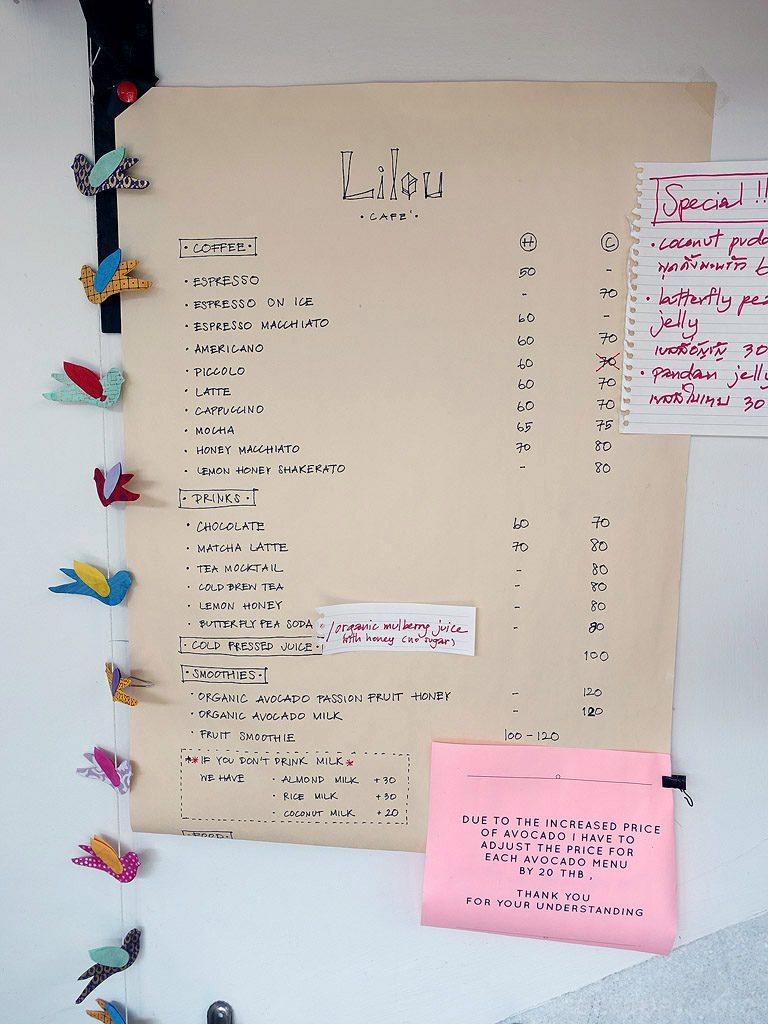 Lilou
• CAFE' •
• COFFEE • H C
• ESPRESSO 50 -
• ESPRESSO ON ICE - 70
• ESPRESSO MACCHIATO 60 -
• AMERICANO 60 70
• PICCOLO 60 70
• LATTE 60 70
• CAPPUCCINO 60 70
• MOCHA 65 75
• HONEY MACCHIATO 70 80
• LEMON HONEY SHAKERATO - 80
• DRINKS •
• CHOCOLATE 60 70
• MATCHA LATTE 70 80
• TEA MOCKTAIL - 80
• COLD BREW TEA - 80
• LEMON HONEY - 80
• BUTTERFLY PEA SODA - 80
• COLD PRESSED JUICE • 100
/organic mulberry juice
with honey (no sugar)
• SMOOTHIES •
• ORGANIC AVOCADO PASSION FRUIT HONEY - 120
• ORGANIC AVOCADO MILK - 120
• FRUIT SMOOTHIE 100 - 120
** IF YOU DON'T DRINK MILK *
WE HAVE • ALMOND MILK +30
• RICE MILK +30
• COCONUT MILK +20
• FOOD •
Special !!
• coconut
• butterfly pea
jelly
30
• pandan jelly
30
DUE TO THE INCREASED PRICE
OF AVOCADO I HAVE TO
ADJUST THE PRICE FOR
EACH AVOCADO MENU
BY 20 THB ,
THANK YOU
FOR YOUR UNDERSTANDING